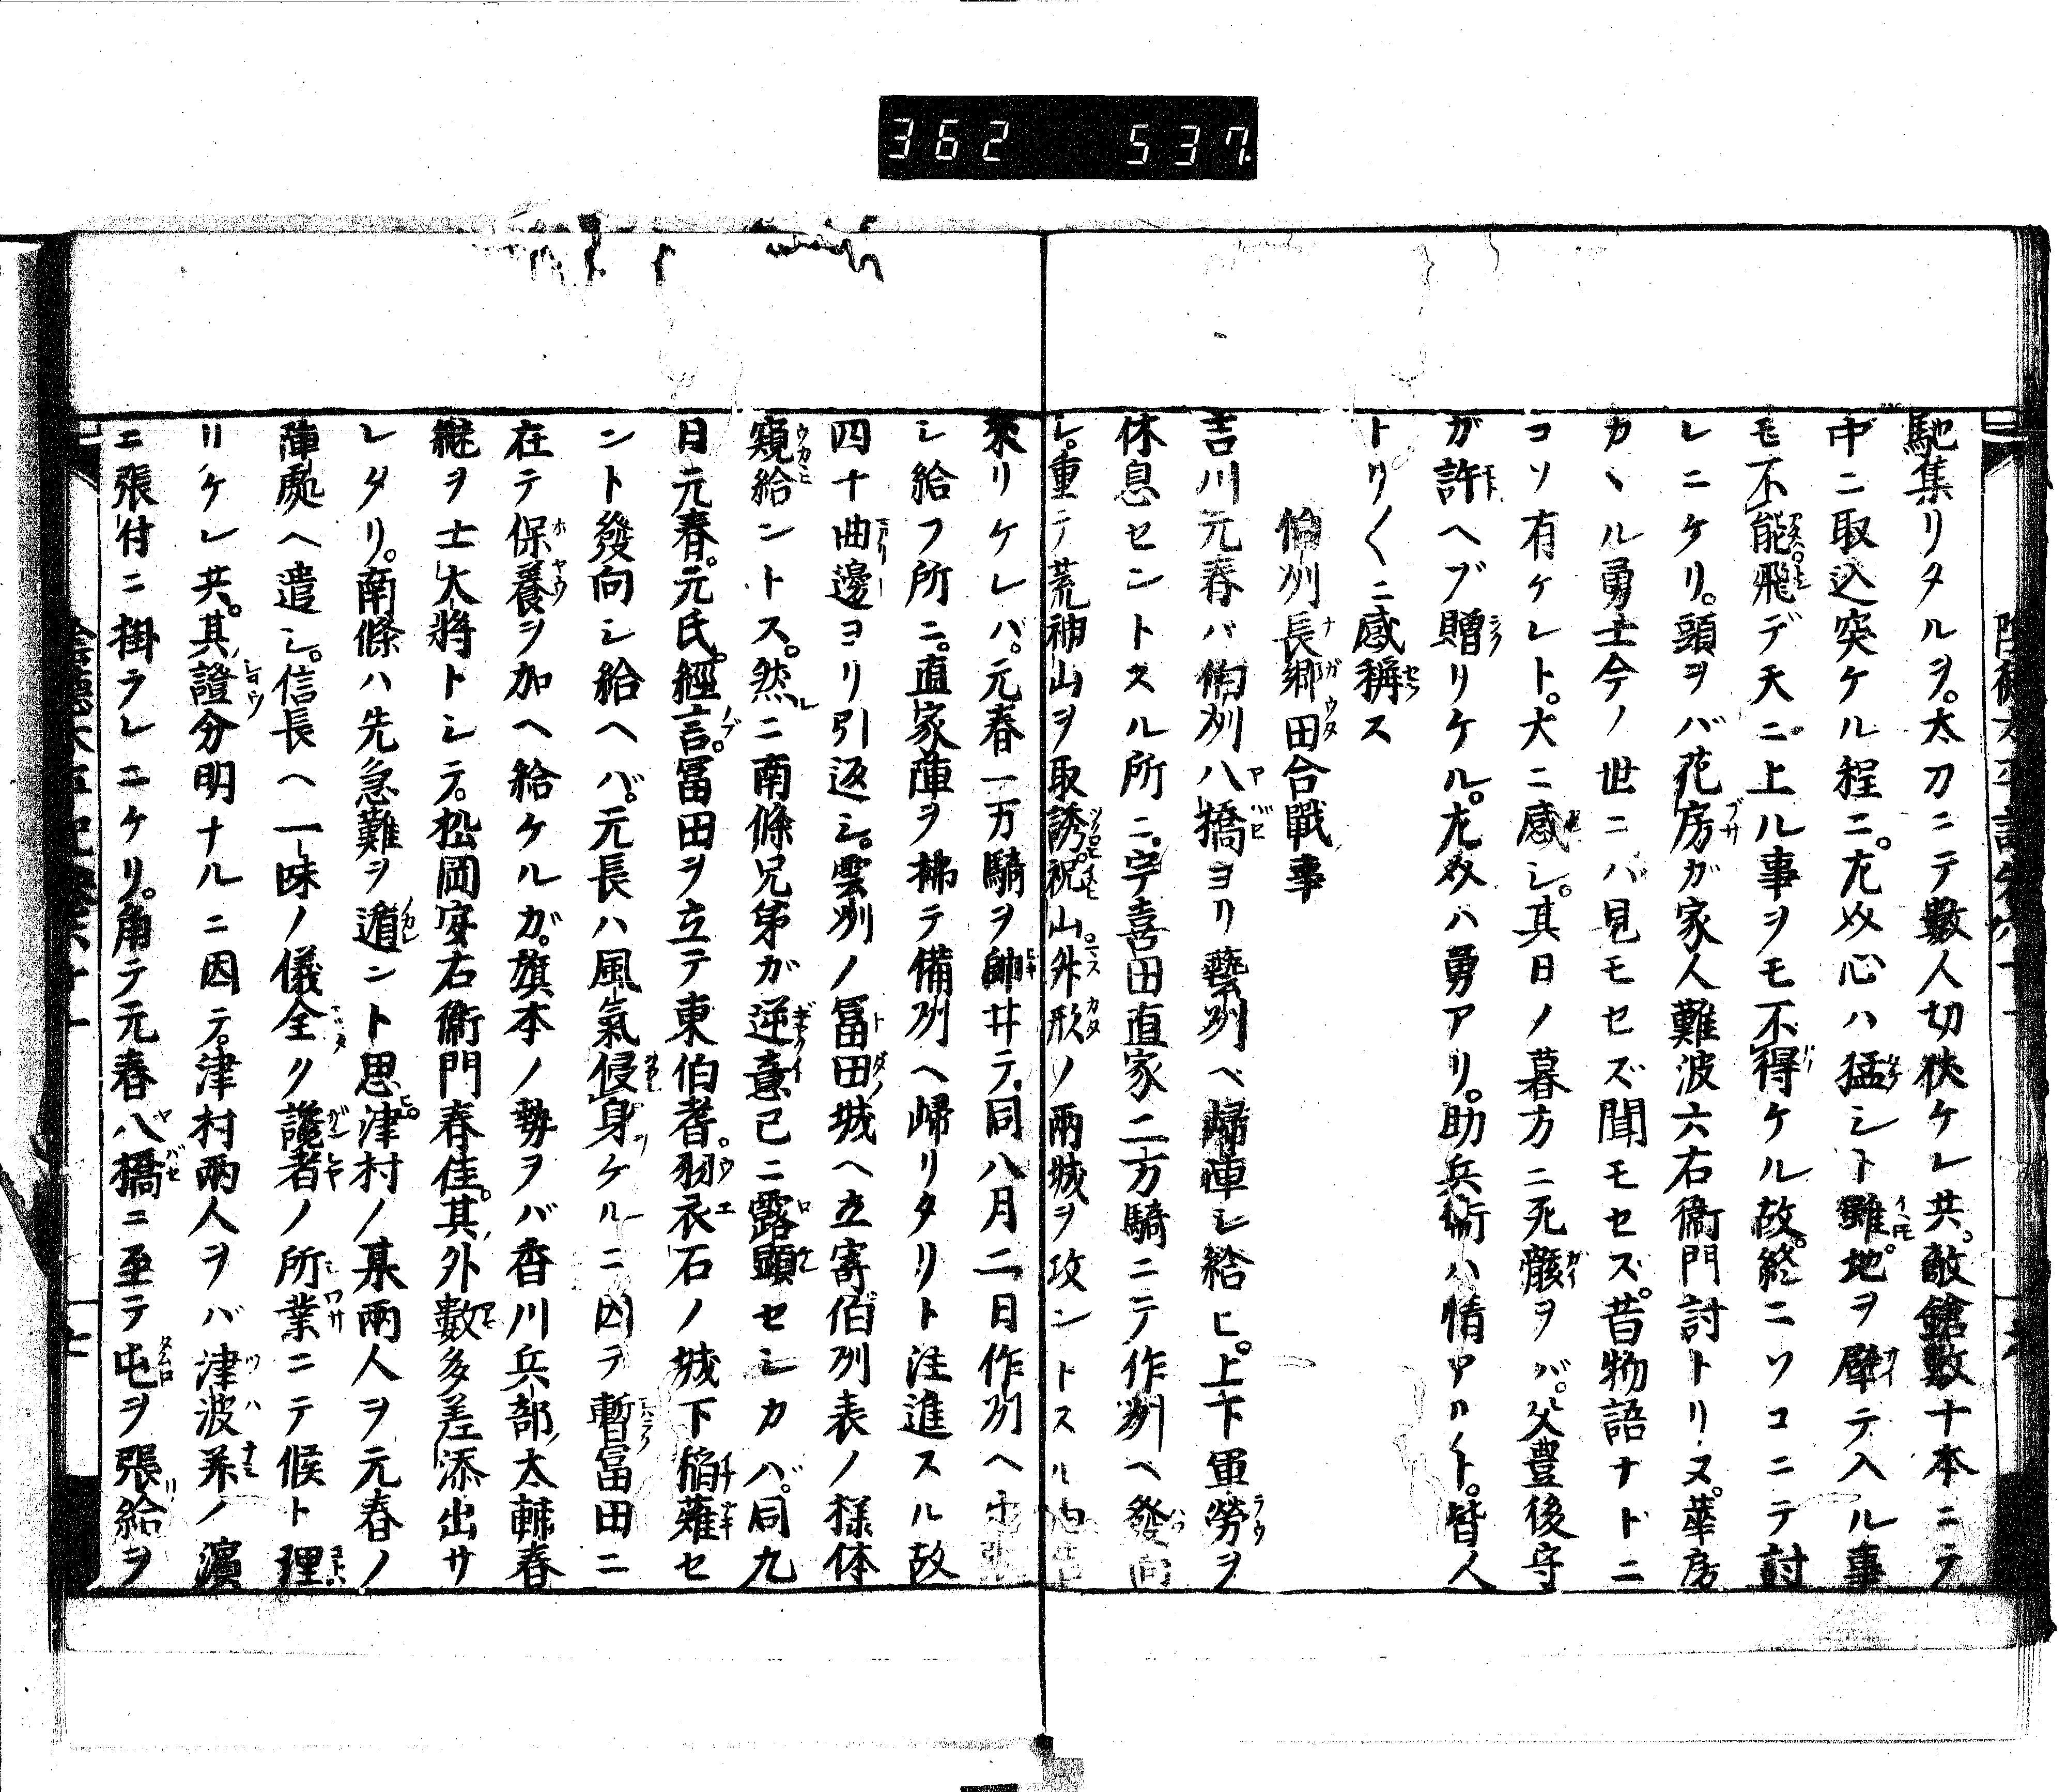 362 537
馳集リタルヲ。太刀ニテ數人切拂ケレ共。敵鎗數十本ニテ
中ニ取込突ケル程ニ。左馭心ハ猛シト雖。地ヲ辟テ入ル事
モ不能飛デ天ニ上ル事ヲモ不得ケル故。終ニソコニテ討
レニケリ。頭ヲバ花房ガ家人難波六右衞門討トリヌ。華房
カヽル勇士今ノ世ニハ見モセズ聞モセズ。昔物語ナドニ
コソ有ケレト。大ニ感シ。其日ノ暮方ニ死骸ヲバ。父豊後守
ガ許ヘブ贈リケル。ハ勇アリ。助兵衞ハ情アハト。皆人
トリ〱ニ感稱ス
伯州長郷田合戰事
吉川元春ハ伯州八橋ヨリ藝州ヘ歸陣シ給ヒ。上下軍勞ヲ
休息セントスル所ニ。宇喜田直家二万騎ニテ作州ヘ發向
シ。重テ荒神山ヲ取誘。祝山。外形ノ兩城ヲ攻ントスル
來リケレバ。元春一万騎ヲ帥井テ。同八月二日作州ヘ出張
シ給フ所ニ。直家陣ヲ拂テ備州ヘ歸リタリト注進スル故
四十曲邊ヨリ引返シ。雲州ノ冨田城ヘ立寄伯州表ノ様体
窺給ントス。然ニ南條兄弟ガ逆意已ニ露顯セシカバ。同九
日元春。元氏。經言。冨田ヲ立テ東伯耆。羽衣石ノ城下稲薙セ
ント發向シ給ヘバ。元長ハ風氣侵身ケルニ因テ暫冨田ニ
在テ保養ヲ加ヘ給ケルガ。旗本ノ勢ヲバ香川兵部太輔春
継ヲ士大將トシテ。松岡安右衞門春佳。其外數多差添出サ
レタリ。南條ハ先急難ヲ遁ント思ヒ。津村ノ某兩人ヲ元春ノ
陣處ヘ遣シ。信長ヘ一味ノ儀全ク讒者ノ所業ニテ候ト理
リケレ共。其證分明ナルニ因テ。津村兩人ヲバ津波系ノ濵
ニ張付ニ掛ラレニケリ。角テ元春八橋ニ至テ屯ヲ張給ヲ